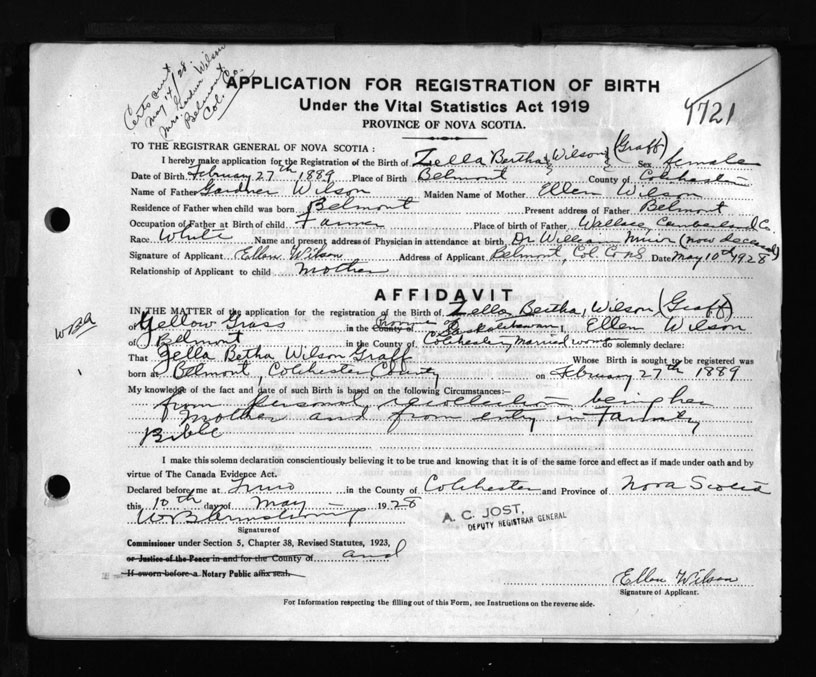 Certs out
May 14/28.
Mrs. Gardner Wilson
Belmont
Col. Co.
APPLICATION FOR REGISTRATION OF BIRTH
Under the Vital Statistics Act 1919
PROVINCE OF NOVA SCOTIA.
9721
TO THE REGISTRAR GENERAL OF NOVA SCOTIA:
I hereby make application for the Registration of the Birth of Zella Bertha, Wilson, (Graff) Sex female
Date of Birth February 27th 1889 Place of Birth Belmont County of Colchester
Name of Father Gardner Wilson Maiden Name of Mother Ellen Wilson
Residence of Father when child was born Belmont Present address of Father Belmont
Occupation of Father at Birth of child Farmer Place of birth of Father Wallace, Cumberland Co.
Race White Name and present address of Physician in attendance at birth Dr William Muir (now deceased)
Signature of Applicant Ellen Wilson Address of Applicant Belmont, Col Co NS Date May 10th 1928
Relationship of Applicant to child mother
AFFIDAVIT
IN THE MATTER of the application for the registration of the Birth of Zella Bertha, Wilson (Graff)
of Yellow Grass in the County of Province of Saskatchewan I, Ellen Wilson
of Belmont in the County of Colchester, married woman do solemnly declare:
That Zella Bertha Wilson Graff Whose Birth is sought to be registered was
born at Belmont, Colchester County on February 27th 1889
My knowledge of the fact and date of such Birth is based on the following Circumstances:
from personal recollection being her
Mother and from entry in Family
Bible
I make this solemn declaration conscientiously believing it to be true and knowing that it is of the same force and effect as if made under oath and by
virtue of The Canada Evidence Act.
Declared before me at Truro in the County of Colchester and Province of Nova Scotia
this 10th day of May 1928
W B Armstrong
Signature of
A. C. JOST,
DEPUTY REGISTRAR GENERAL
Commissioner under Section 5, Chapter 38, Revised Statutes, 1923,
or Justice of the Peace in and for the County of and
If sworn before a Notary Public affix seal.
Ellen Wilson
Signature of Applicant.
For Information respecting the filling out of this Form, see Instructions on the reverse side.